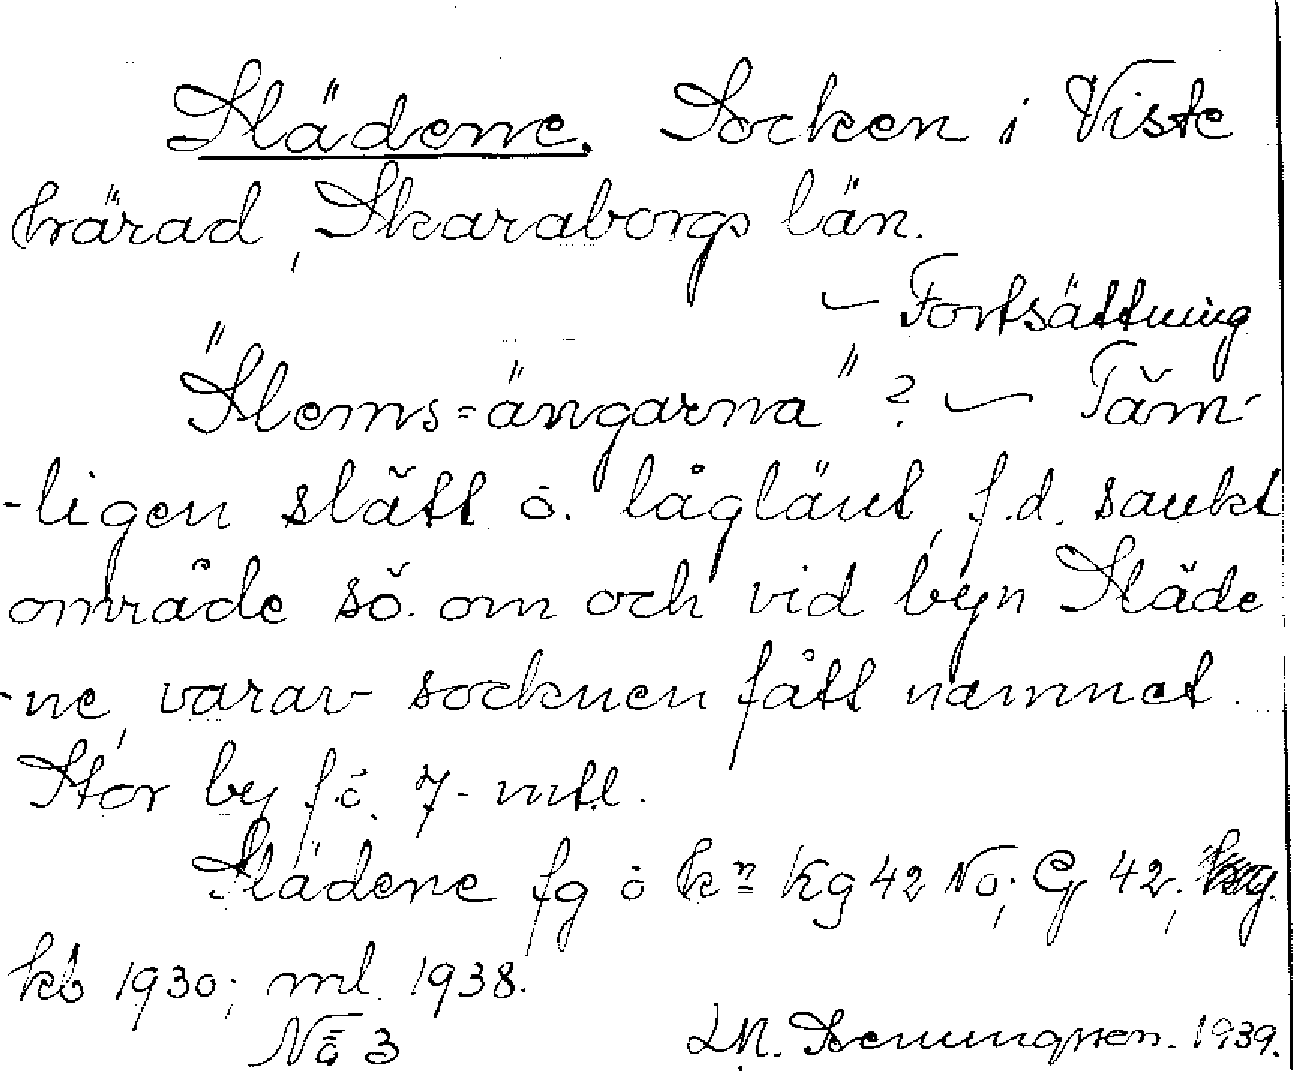 Slädene. Socken i Viste
härad, Skaraborgs län.
— Fortsättning
"Slems-ängarna"? — Täm-
-ligen slätt o. låglänt, f.d. sankt
område sö. om och vid byn Släde
-ne, varav socknen fått namnet.
Stor by f.ö. 7- mtl.
Slädene fg o kn Kg 42 No; G 42;
kb 1930; ml. 1938.
No 3 1939.